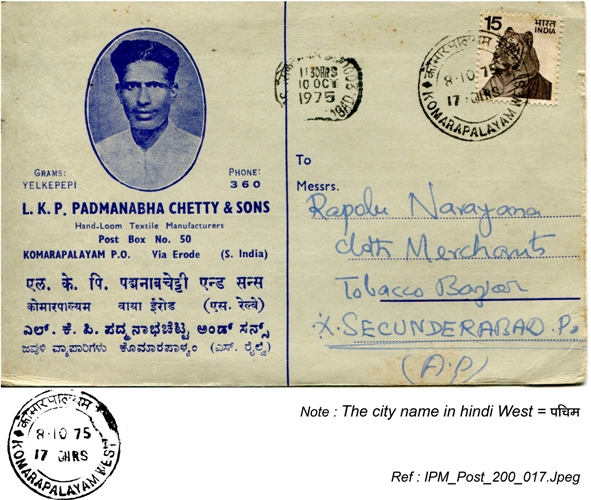 15 भारत
INDIA
1130HRS
10 OCT
1975
कोमारपाल्यम
8·10 75
17 GHRS
KOMARAPALAYAM WEST
GRAMS:
YELKEPEPI
PHONE:
360
L. K. P. PADMANABHA CHETTY & SONS
Hand-Loom Textile Manufacturers
Post Box No. 50
KOMARAPALAYAM P.O. Via Erode (S. India)
एल. के. पि. पद्मनाबचेट्टी एन्ड सन्स
कोमारपाल्यम वाया ईरोड (एस. रेल्वे)
ಎಲ್. ಕೆ. ಪಿ. ಪದ್ಮನಾಭಚೆಟ್ಟಿ ಅಂಡ್ ಸನ್ಸ್
ಜವುಳಿ ವ್ಯಾಪಾರಿಗಳು ಕೊಮಾರಪಾಳ್ಯಂ (ಎಸ್. ರೈಲ್ವೆ)
To
Messrs.
Rapolu Narayana
cloth Merchants
Tobacco Bazar
X. SECUNDERABAD. Po
(A.P)
कोमारपाल्यम
8·10 75
17 GHRS
KOMARAPALAYAM WEST
Note : The city name in hindi West = पचिम
Ref : IPM_Post_200_017.Jpeg